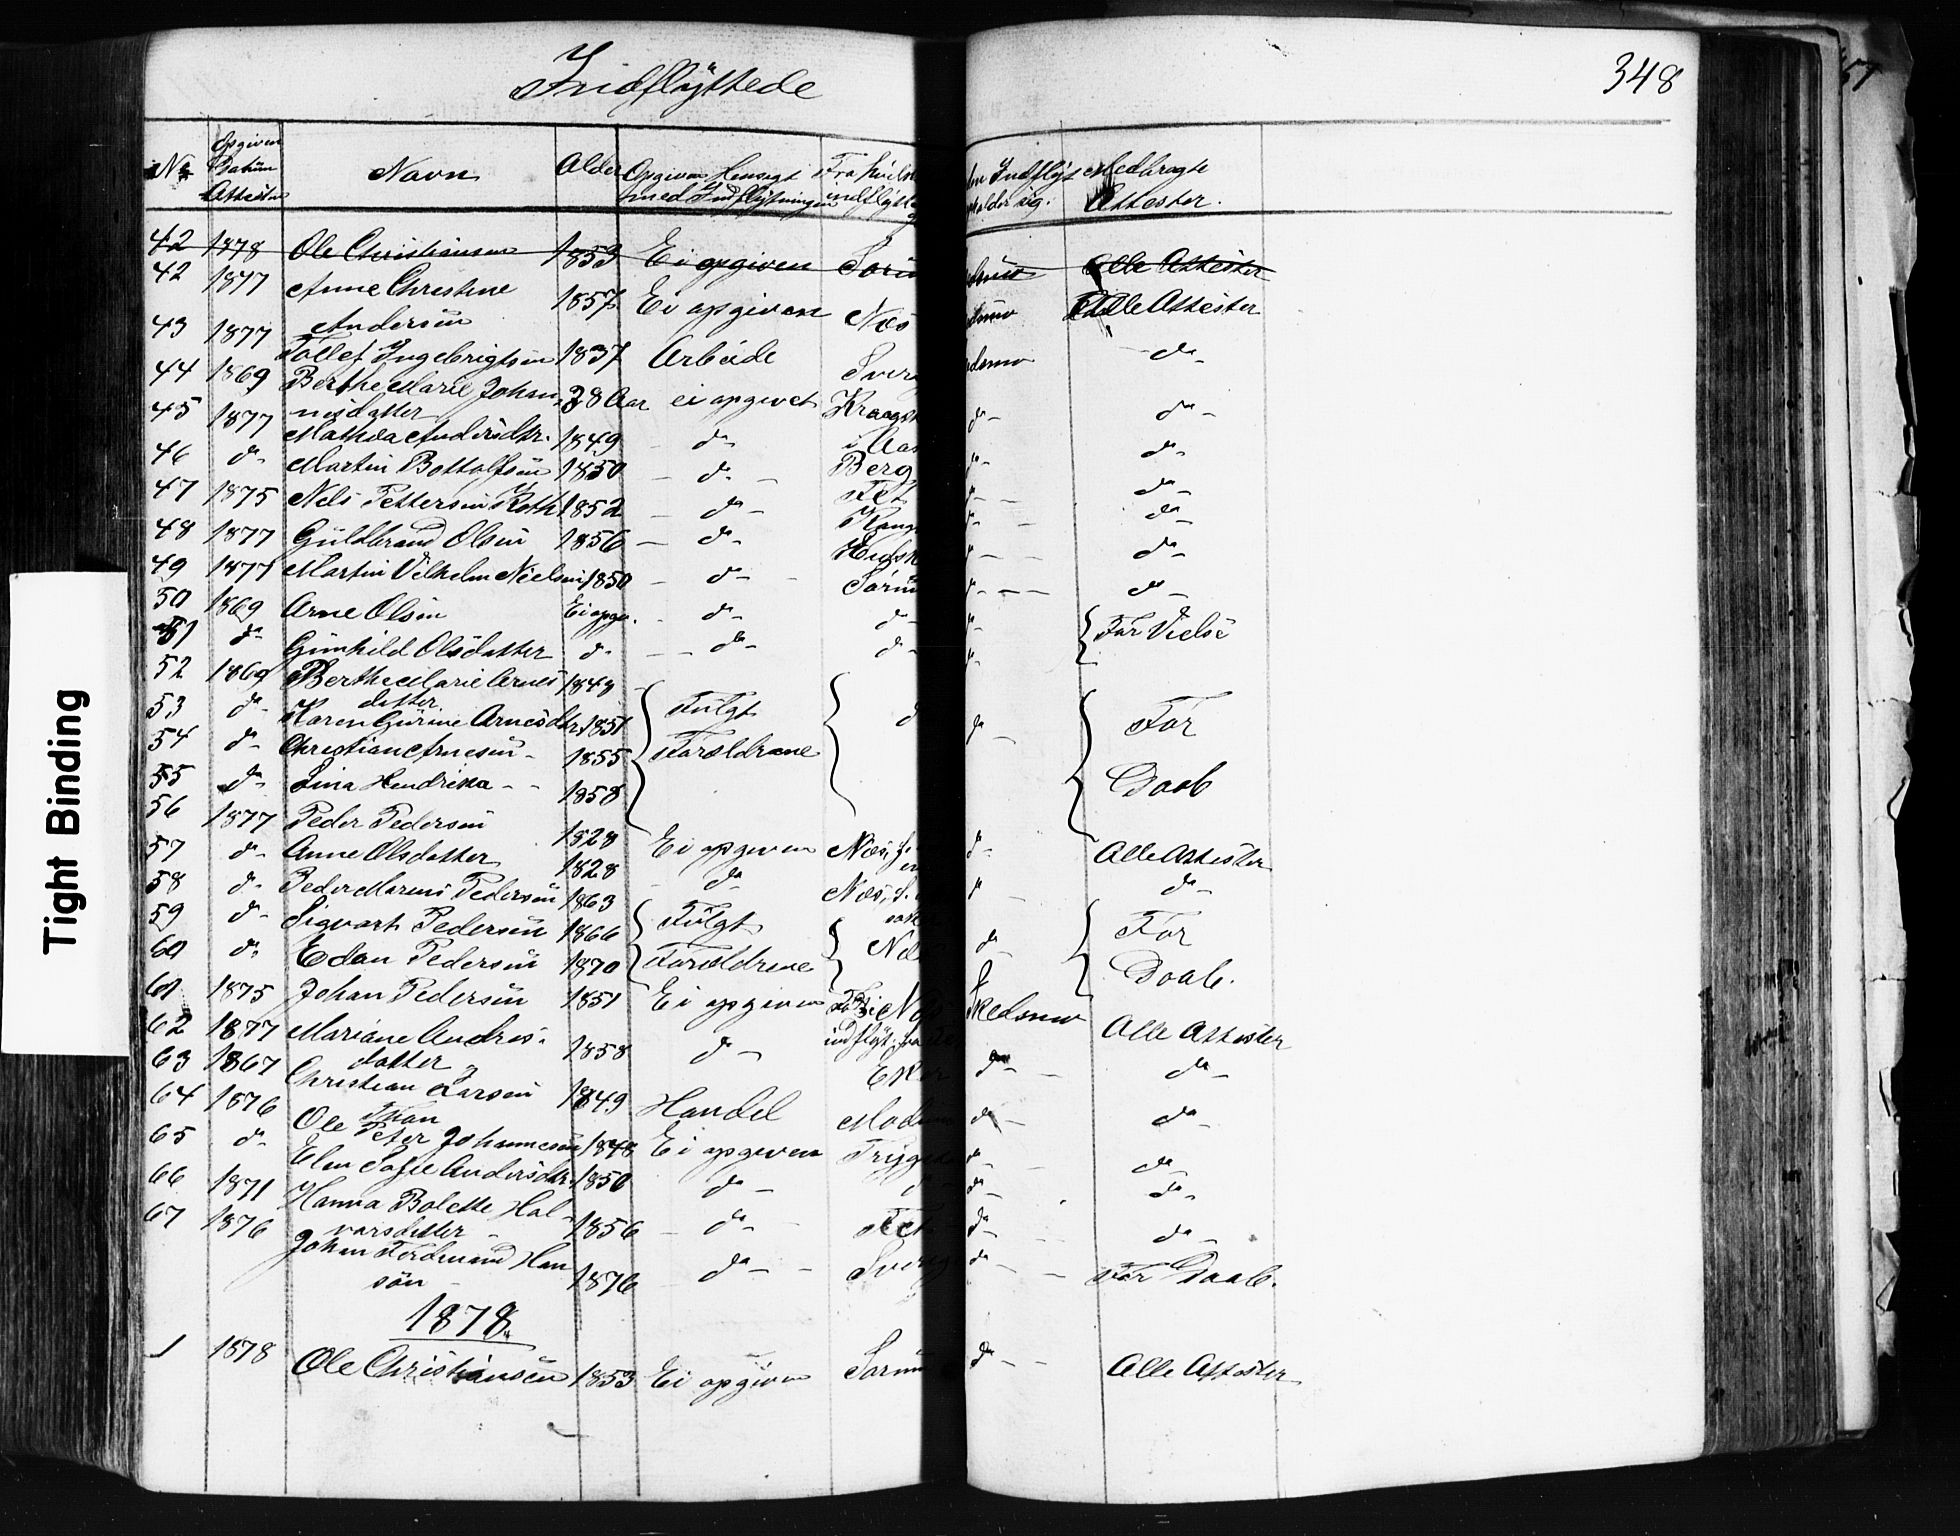 Indflÿttede
348
No
Opgiven Datum Attesten
Navn
Alder
Opgiven Hensigt med Indflÿtningen
Medbragte Attester.
42 1878 Ole Christiansen 1853 Ei opgiven Sørü Alle Attester
42 1877 Anne Christine Andersen 1857 Ei opgiven Næs Alle Attester
43 1877 Tollef Ingebrigtsen 1837 Arbeide Sverig do
44 1869 Berthe Marie Johannisdatter 38 Aar ei opgivet do do
45 1877 Mathea Andersdtr. 1849 do do do
46 do Martin Bottolfsen 1850 do Berg do do
47 1875 Nels Pettersen Roth 1852 do Fet do do
48 1877 Güldbrand Olsen 1856 do do do
49 1877 Martin Vilhelm Nielsen 1850 do Sørüm do do
50 1869 Arne Olsen Ei opgv. do do do Før Vielse
51 do Günhild Olsdatter do do do do
52 1869 Berthe Marie Arnesdatter 1848
53 do Karen Gürine Arnesdtr. 1851 Fulgt do Før
54 do Christian Arnesen 1855 Foreldrene
55 do Lina Hendrika 1858 Daab
56 1877 Peder Pedersen 1828 Ei opgiven Næs, do Alle Attester
57 do Anne Olsdatter 1828 do Næs, do do
58 do Peder Marius Pedersen 1863
59 do Sigvart Pedersen 1866 Fulgt do Før
60 do Edan Pedersen 1870 Foreldrene Daab.
61 1875 Johan Pedersen 1851 Ei opgiven Skedsmo Alle Attester
62 1877 Mariane Andresdatter 1858 do Eker do do
63 1867 Christian Larsen Moan 1849 Handel Modum do do
64 1876 Ole Peter Johannesen 1848 Ei opgiven do do
65 do Elen Sofie Andersdtr. 1850 do do do
66 1871 Hanna Bolette Halvorsdatter 1856 do Fet do do
67 1876 Johan Ferdinand Hansøn 1876 do Sverige do Før Daab.
1878.
1 1878 Ole Christiansen 1853 Ei opgiven Sørüm do Alle Attester
Tight Binding